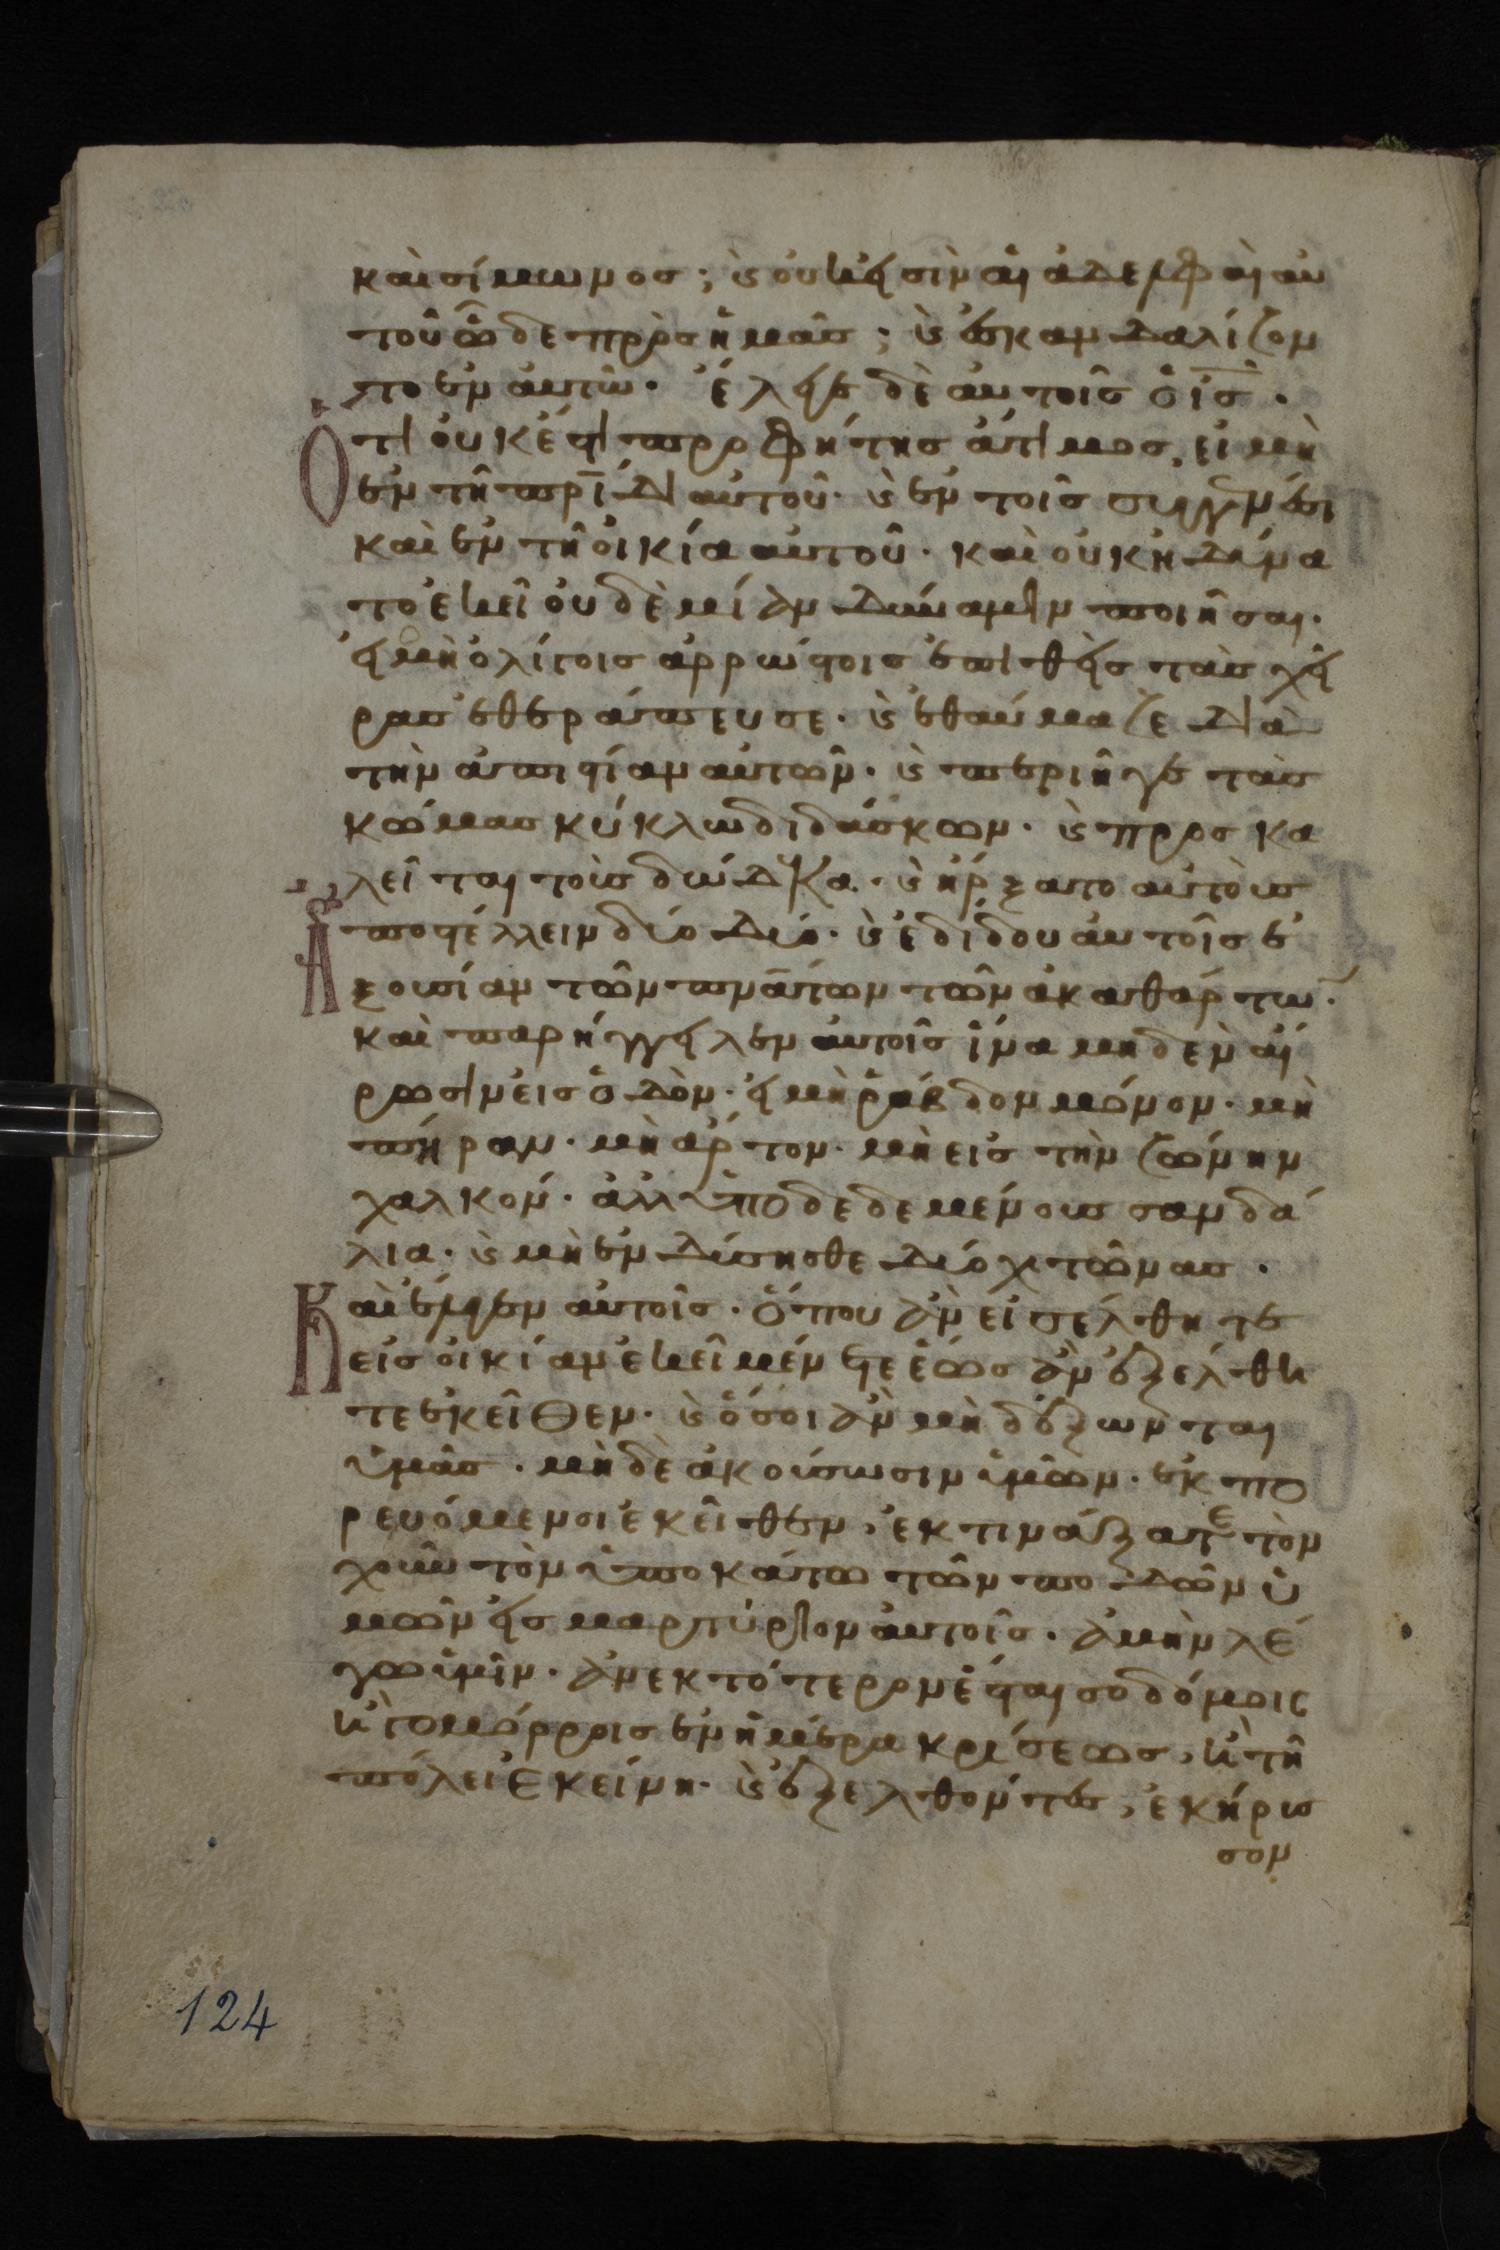 καὶ σίμωνος; καὶ οὐκ εἰσὶν αἱ ἀδελφαὶ αὐ
τοῦ ὧδε πρὸς ἡμᾶς; καὶ ἐσκανδαλίζον
το ἐν αὐτῶ. ἔλεγε δὲ αὐτοῖς ὁ ι̅ς̅.
Ὅτι οὐκ ἔστι προφήτης ἄτιμος, εἰ μὴ
ἐν τῆ πρ̅ίδι αὐτοῦ. καὶ ἐν τοῖς συγγενέσι
καὶ ἐν τῆ οἰκία αὐτοῦ. καὶ οὐκ ἠδύνα
το ἐκεῖ οὐδὲ μίαν δύναμιν ποιῆσαι.
εἰ μὴ ὀλίγοις ἀρρώστοις ἐπιθεὶς τὰς χεῖ
ρας ἐθεράπευσε. καὶ ἐθαύμαζε διὰ
τὴν ἀπιστίαν αὐτῶν. καὶ περιῆγε τὰς
κώμας κύκλω διδάσκων. καὶ προσκα
λεῖται τοὺς δώδεκα. καὶ ἤρξατο αὐτοὺς
Ἀποστέλλειν δύο δύο. καὶ ἐδίδου αὐτοῖς ἐ
ξουσίαν τῶν πν̅άτων τῶν ἀκαθάρτων.
καὶ παρήγγειλεν αὐτοῖς ἵνα μηδὲν αἴ
ρωσιν εἰς ὁδὸν. εἰ μὴ ῥάβδον μόνον. μὴ
πήραν. μὴ ἄρτον. μὴ εἰς τὴν ζώνην
χαλκόν. ἀλλ ὑποδεδεμένους σανδά
λια. καὶ μὴ ἐνδύσησθε δύο χιτῶνας.
Καὶ ἔλεγεν αὐτοῖς. ὅπου ἂν εἰσέλθητε
εἰς οἰκίαν ἐκεῖ μένετε ἕως ἂν ἐξέλθη
τε ἐκεῖθεν. καὶ ὅσοι ἂν μὴ δέξωνται
ὑμᾶς. μὴ δὲ ἀκούσωσιν ὑμῶν. ἐκπο
ρευόμενοι ἐκεῖθεν, ἐκτινάξατε τὸν
χοῦν τὸν ὑποκάτω τῶν ποδῶν ὑ
μῶν εἰς μαρτύριον αὐτοῖς. ἀμὴν λέ
γω ὑμῖν. ἀνεκτότερον ἔσται σοδόμοις
ἢ γομόρροις ἐν ἡμέρα κρίσεως, ἢ τῆ
πόλει ἐκείνη. καὶ ἐξελθόντες, ἐκήρυσ
σον
124